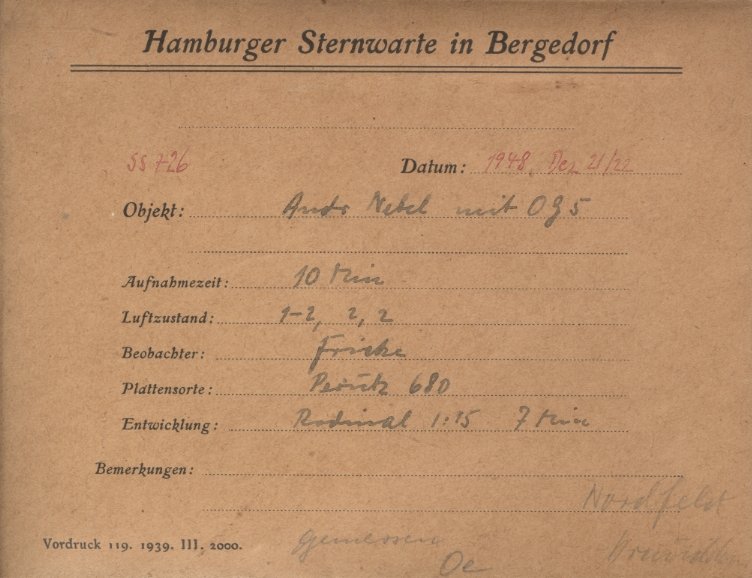 Hamburger Sternwarte in Bergedorf
SS 726 Datum: 1948, Dez 21/22
Objekt: Andr Nebel mit OG5
Aufnahmezeit: 10 Min
Luftzustand: 1-2, 2, 2
Beobachter: Fricke
Plattensorte: Perutz 680
Entwicklung: Rodinal 1:15 7 Min
Bemerkungen:
Nordfeldt
Vordruck 119. 1939. III. 2000. gemessen
Oe